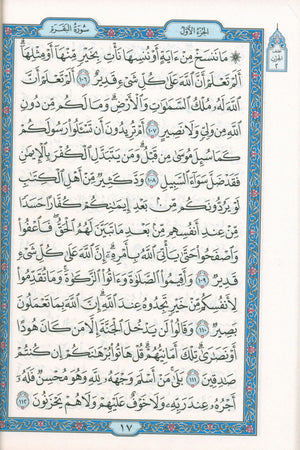 سُورَةُ البَقَرَةِ الجُزْءُ الأَوَّلُ
۞ مَا نَنسَخْ مِنْ ءَايَةٍ أَوْ نُنسِهَا نَأْتِ بِخَيْرٍ مِّنْهَا أَوْ مِثْلِهَا
أَلَمْ تَعْلَمْ أَنَّ اللَّهَ عَلَىٰ كُلِّ شَىْءٍ قَدِيرٌ ١٠٦ أَلَمْ تَعْلَمْ أَنَّ
اللَّهَ لَهُ مُلْكُ السَّمَٰوَٰتِ وَالْأَرْضِ وَمَا لَكُم مِّن دُونِ
اللَّهِ مِن وَلِىٍّ وَلَا نَصِيرٍ ١٠٧ أَمْ تُرِيدُونَ أَن تَسْـَٔلُوا رَسُولَكُمْ
كَمَا سُئِلَ مُوسَىٰ مِن قَبْلُ وَمَن يَتَبَدَّلِ الْكُفْرَ بِالْإِيمَٰنِ
فَقَدْ ضَلَّ سَوَاءَ السَّبِيلِ ١٠٨ وَدَّ كَثِيرٌ مِّنْ أَهْلِ الْكِتَٰبِ
لَوْ يَرُدُّونَكُم مِّن بَعْدِ إِيمَٰنِكُمْ كُفَّارًا حَسَدًا
مِّنْ عِندِ أَنفُسِهِم مِّن بَعْدِ مَا تَبَيَّنَ لَهُمُ الْحَقُّ فَاعْفُوا
وَاصْفَحُوا حَتَّىٰ يَأْتِىَ اللَّهُ بِأَمْرِهِ إِنَّ اللَّهَ عَلَىٰ كُلِّ شَىْءٍ
قَدِيرٌ ١٠٩ وَأَقِيمُوا الصَّلَوٰةَ وَءَاتُوا الزَّكَوٰةَ وَمَا تُقَدِّمُوا
لِأَنفُسِكُم مِّنْ خَيْرٍ تَجِدُوهُ عِندَ اللَّهِ إِنَّ اللَّهَ بِمَا تَعْمَلُونَ
بَصِيرٌ ١١٠ وَقَالُوا لَن يَدْخُلَ الْجَنَّةَ إِلَّا مَن كَانَ هُودًا
أَوْ نَصَٰرَىٰ تِلْكَ أَمَانِيُّهُمْ قُلْ هَاتُوا بُرْهَٰنَكُمْ إِن كُنتُمْ
صَٰدِقِينَ ١١١ بَلَىٰ مَنْ أَسْلَمَ وَجْهَهُ لِلَّهِ وَهُوَ مُحْسِنٌ فَلَهُ
أَجْرُهُ عِندَ رَبِّهِ وَلَا خَوْفٌ عَلَيْهِمْ وَلَا هُمْ يَحْزَنُونَ ١١٢
١٧